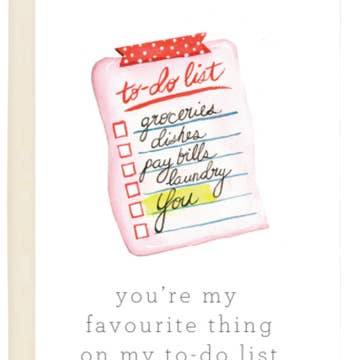 to-do list
groceries
dishes
pay bills
laundry
you
you're my
favourite thing
on my to-do list